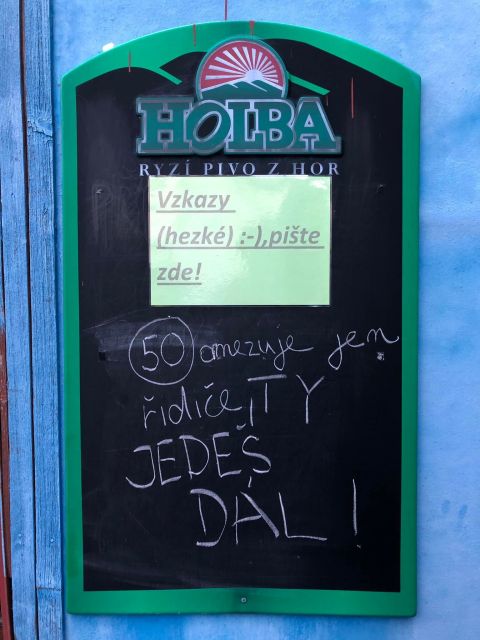 HOLBA
RYZÍ PIVO Z HOR
Vzkazy
(hezké) :-),pište
zde!
50 omezuje jen
řidiče, TY
JEDEŠ
DÁL!